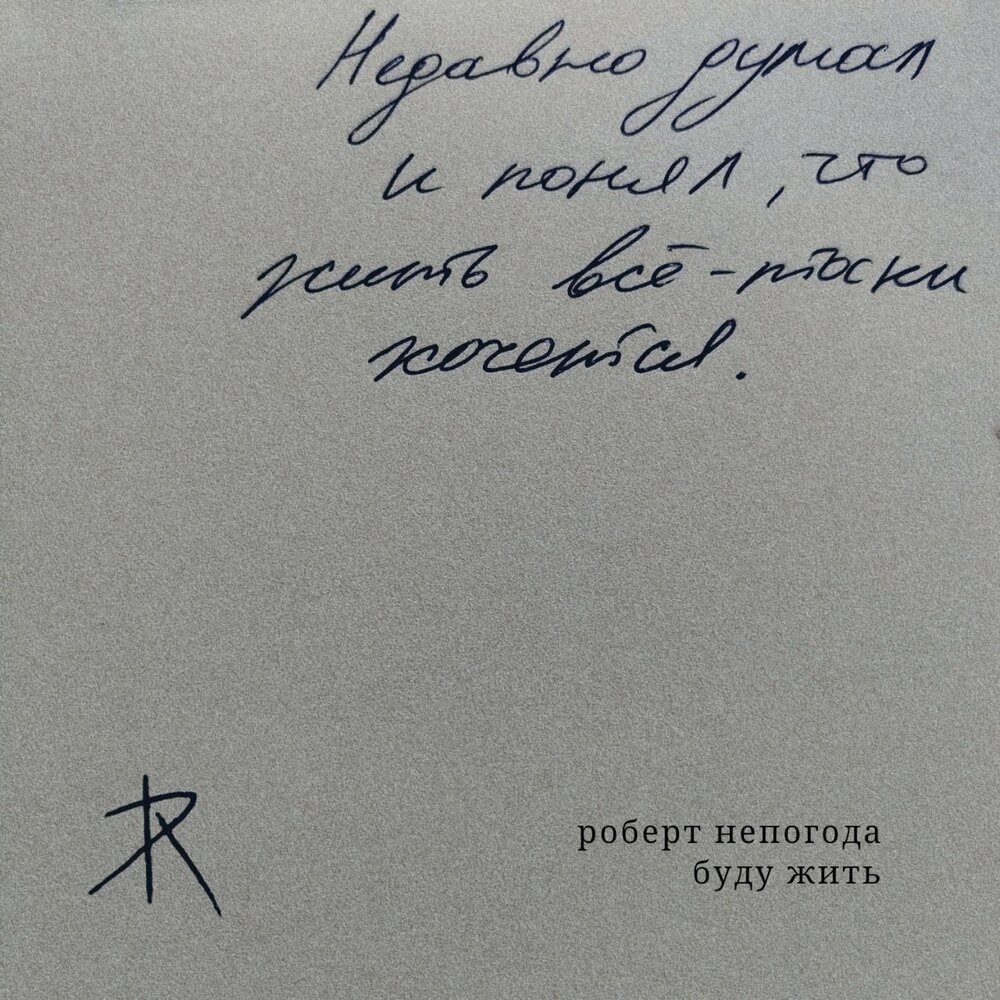 Недавно думал
и понял, что
жить всё-таки
хочется.
роберт непогода
буду жить